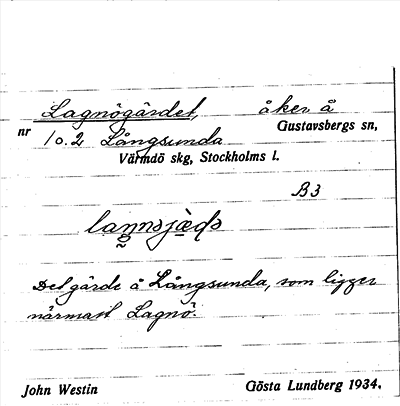 Lagnögärdet, åker å
nr 10.2 Långsunda Gustavsbergs sn,
Värmdö skg, Stockholms l.
B3
Det gärde å Långsunda, som ligger
närmast Lagnö.
John Westin Gösta Lundberg 1934.